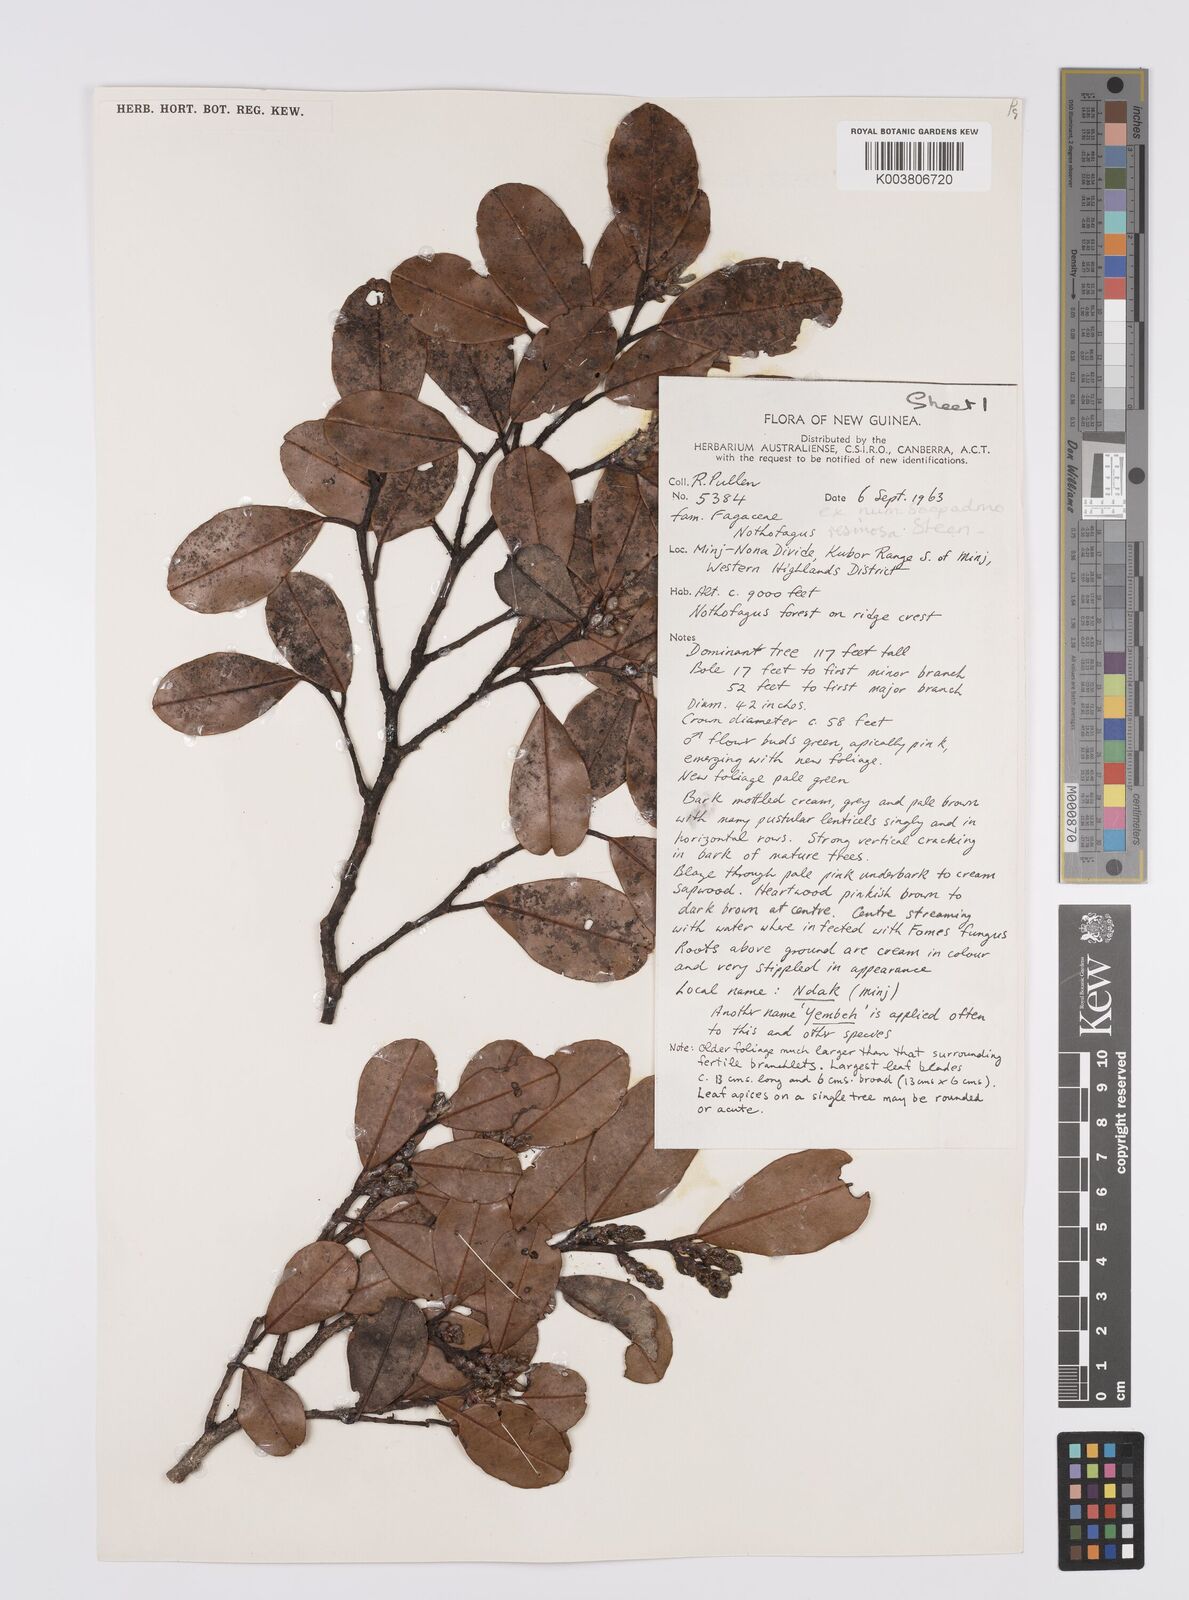 HERB. HORT. BOT. REG. KEW.
ROYAL BOTANIC GARDENS KEW
K003806720
Sheet 1
FLORA OF NEW GUINEA.
Distributed by the
HERBARIUM AUSTRALIENSE, C.S.I.R.O., CANBERRA, A.C.T.
with the request to be notified of new identifications.
Coll. R. Pullen
No. 5384 Date 6 Sept. 1963
fam. Fagaceae
Nothofagus resinosa Steen.
Loc. Minj-Nona Divide, Kubor Range S. of Minj,
Western Highlands District
Hab. Alt. c. 9000 feet
Nothofagus forest on ridge crest
Notes
Dominant tree 117 feet tall
Bole 17 feet to first minor branch
52 feet to first major branch
Diam. 42 inches.
Crown diameter c. 58 feet
♂ flower buds green, apically pink,
emerging with new foliage.
New foliage pale green
Bark mottled cream, grey and pale brown
with many pustular lenticels singly and in
horizontal rows. Strong vertical cracking
in bark of mature trees.
Blaze through pale pink underbark to cream
sapwood. Heartwood pinkish brown to
dark brown at centre. Centre streaming
with water where infected with Fomes fungus
Roots above ground are cream in colour
and very stippled in appearance
Local name: Ndak (Minj)
Another name 'Yembeh' is applied often
to this and other species
Note: Older foliage much larger than that surrounding
fertile branchlets. Largest leaf blades
c. 13 cms. long and 6 cms. broad (13 cms x 6 cms).
Leaf apices on a single tree may be rounded
or acute.
inches
centimeters
Density
Don Williams
M000870
Royal Botanic Gardens
Kew
0 1 2 3 4 5 6 7 8 9 10
cm
copyright reserved